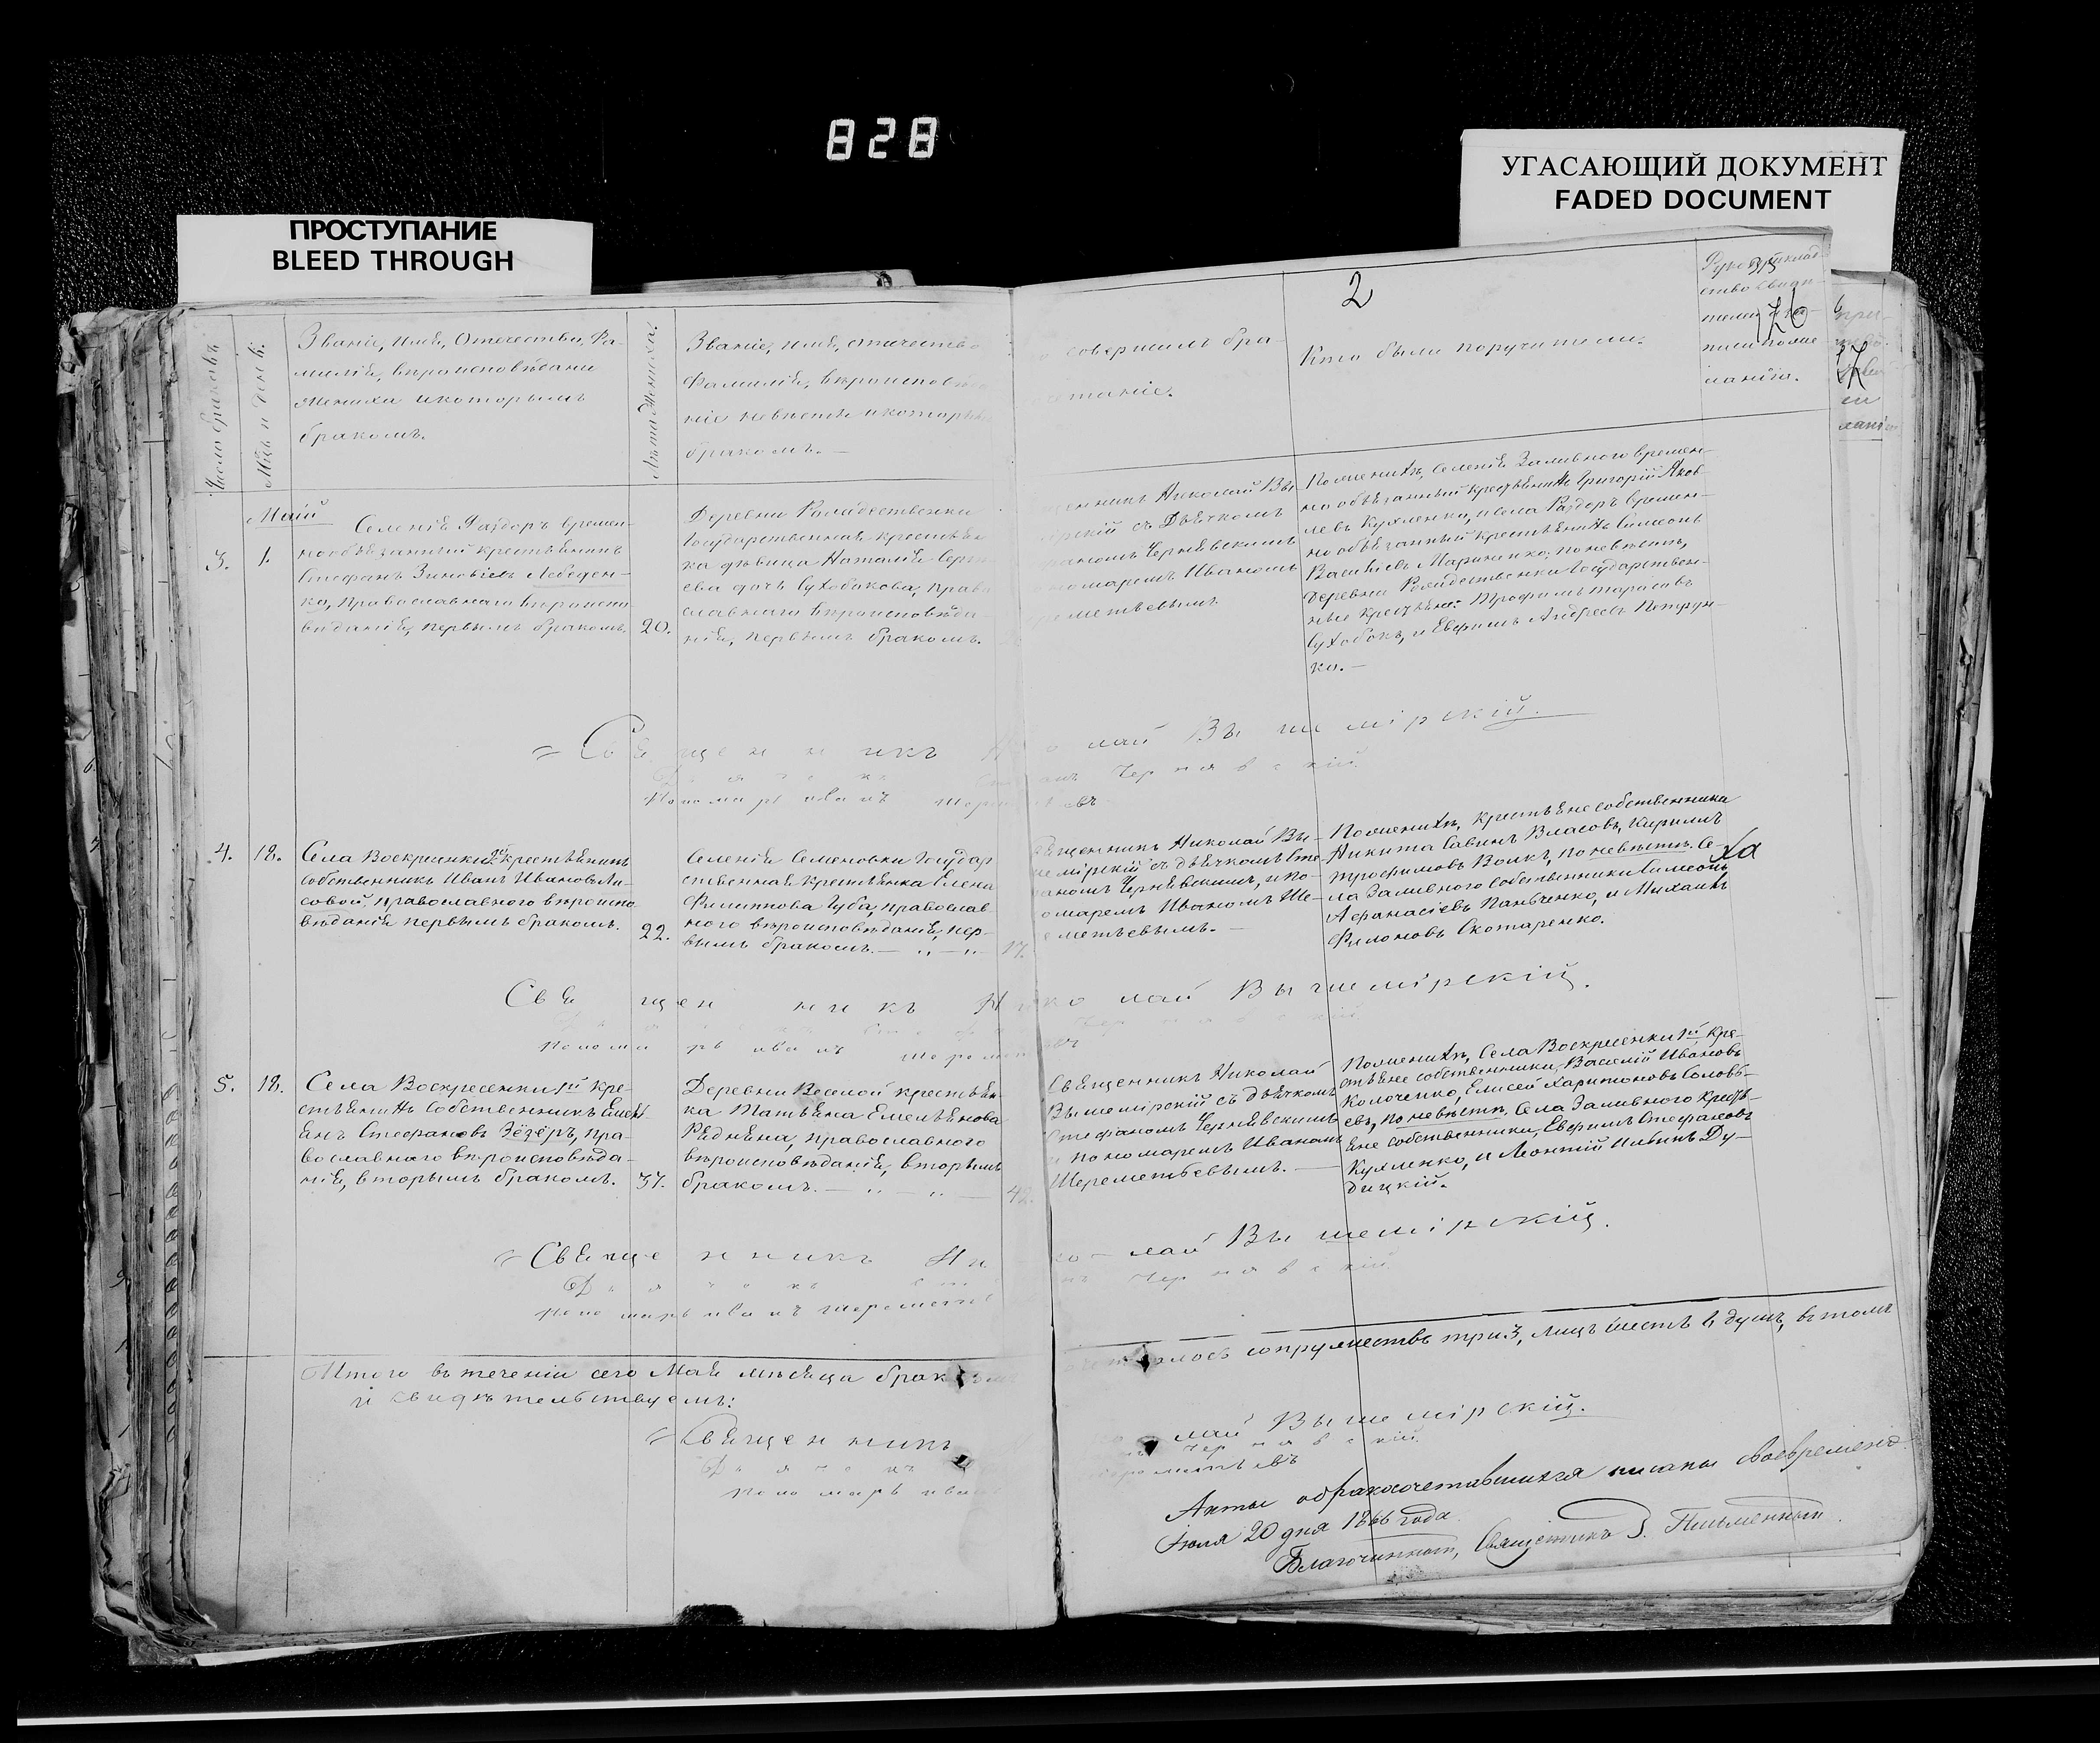 828
УГАСАЮЩИЙ ДОКУМЕНТ
FADED DOCUMENT
ПРОСТУПАНИЕ
BLEED THROUGH
2
Число браковъ.
Мѣц. и день.
Званіе, имя, отчество, фа-
милія, вѣроисповѣдани
жениха и которымъ
бракомъ.
Лѣта жениха.
Званіе, имя, отчество
фамилія, вѣроисповѣда
ніе невѣсты и которымъ
бракомъ. —
совершилъ бра-
четаніе.
Кто были поручители.
Май
3. 1.
Селенія Раздоръ времен-
нообязанный крестьянинъ
Стефанъ Зиновіевъ Лебеден-
ко, православнаго вѣроиспо
вѣданія, первымъ бракомъ.
20.
Деревни Рождественки
Государственная крестьян
ка дѣвица Наталія Серг
ева дочь Сухобокова, право
славнаго вѣроисповѣда-
нія, первымъ бракомъ.
щенникъ Николай Вы
мірскій съ Дьячкомъ
фаномъ Чернявскимъ
пономаремъ Иваномъ
реметьевымъ.
По женихѣ, селенія Заливнаго времен-
но обязанный крестьянинъ Григорій Яков-
левъ Кухленко, и села Раздоръ времен-
но обязанный крестьянинъ Симеонъ
Васильевъ Мариненко; по невѣстѣ,
деревни Рождественки Государствен-
ные крестьяне: Трофимъ Тарасовъ
Сухобокъ, и Ефимъ Андреевъ Петрун-
ко. —
Священникъ Николай Вышемірскій.
Дьячокъ Стефанъ Чернявскій.
Пономарь Иванъ Шереметьевъ
4. 18.
Села Воскресенки 1й крестьянинъ
собственникъ Иванъ Ивановъ Ли-
совой, православнаго вѣроиспо
вѣданія первымъ бракомъ.
22.
Селенія Семеновки Государ
ственная крестьянка Елена
Филиппова Губа, православ
ного вѣроисповѣданія, пер-
вымъ бракомъ. — „ — „ —
17.
Священникъ Николай Вы-
шемірскій съ дьячкомъ Сте-
фаномъ Чернявскимъ, и по-
номаремъ Иваномъ Ше-
реметьевымъ. —
По женихѣ, крестьяне собственники
Никита Савинъ Власовъ, Кирилъ
Трофимовъ Волкъ, по невѣстѣ, Се-
ла Заливного собственники Симеонъ
Афанасіевъ Панченко, и Михаилъ
Филоновъ Скотаренко.
Священникъ Николай Вышемірскій.
Дьячокъ Стефанъ Чернявскій.
Пономарь Иванъ Шереметьевъ
5. 18.
Села Воскресенки 1й кре-
стьянинъ собственникъ Емель
янъ Стефановъ Зёзёръ, пра-
вославнаго вѣроисповѣда-
нія, вторымъ бракомъ.
37.
Деревни Веселой крестьян
ка Татьяна Емельянова
Рѣднѣна, православнаго
вѣроисповѣданія, вторымъ
бракомъ. — „ — „ —
42.
Священникъ Николай
Вышемірскій съ дьячкомъ
Стефаномъ Чернявскимъ
и пономаремъ Иваномъ
Шереметьевымъ. —
По женихѣ, Села Воскресенки 1й кре-
стьяне собственники, Василій Ивановъ
Колоченко, Елисей Харитоновъ Соловь-
евъ, по невѣстѣ, Села Заливного кресть-
яне собственники, Ефимъ Стефановъ
Кухленко, и Леонтій Ильинъ Ду-
дицкій.
Священникъ Николай Вышемірскій.
Дьячокъ Стефанъ Чернявскій.
Пономарь Иванъ Шереметьевъ
Итого въ теченіи сего Мая мѣсяца брак
сочеталось супружествъ три 3, лицъ шесть 6 душъ, въ томъ
и свидѣтельствуемъ:
Священникъ Николай Вышемірскій.
Дьячокъ Стефанъ Чернявскій.
Пономарь Иванъ Шереметьевъ
Акты о бракосочетавшихся писаны своевременно.
Іюля 20 дня 1866 года.
Благочинный, Священникъ З. Письменный.